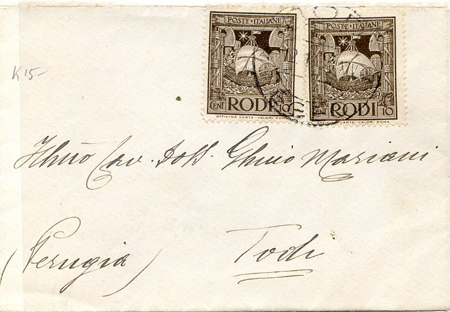 POSTE ITALIANE POSTE ITALIANE
CENT RODI 10 CENT RODI 10
OFFICINA CARTE-VALORI ROMA OFFICINA CARTE-VALORI ROMA
K 15-
Illmo Cav. Dott. Mariani
(Perugia) Todi